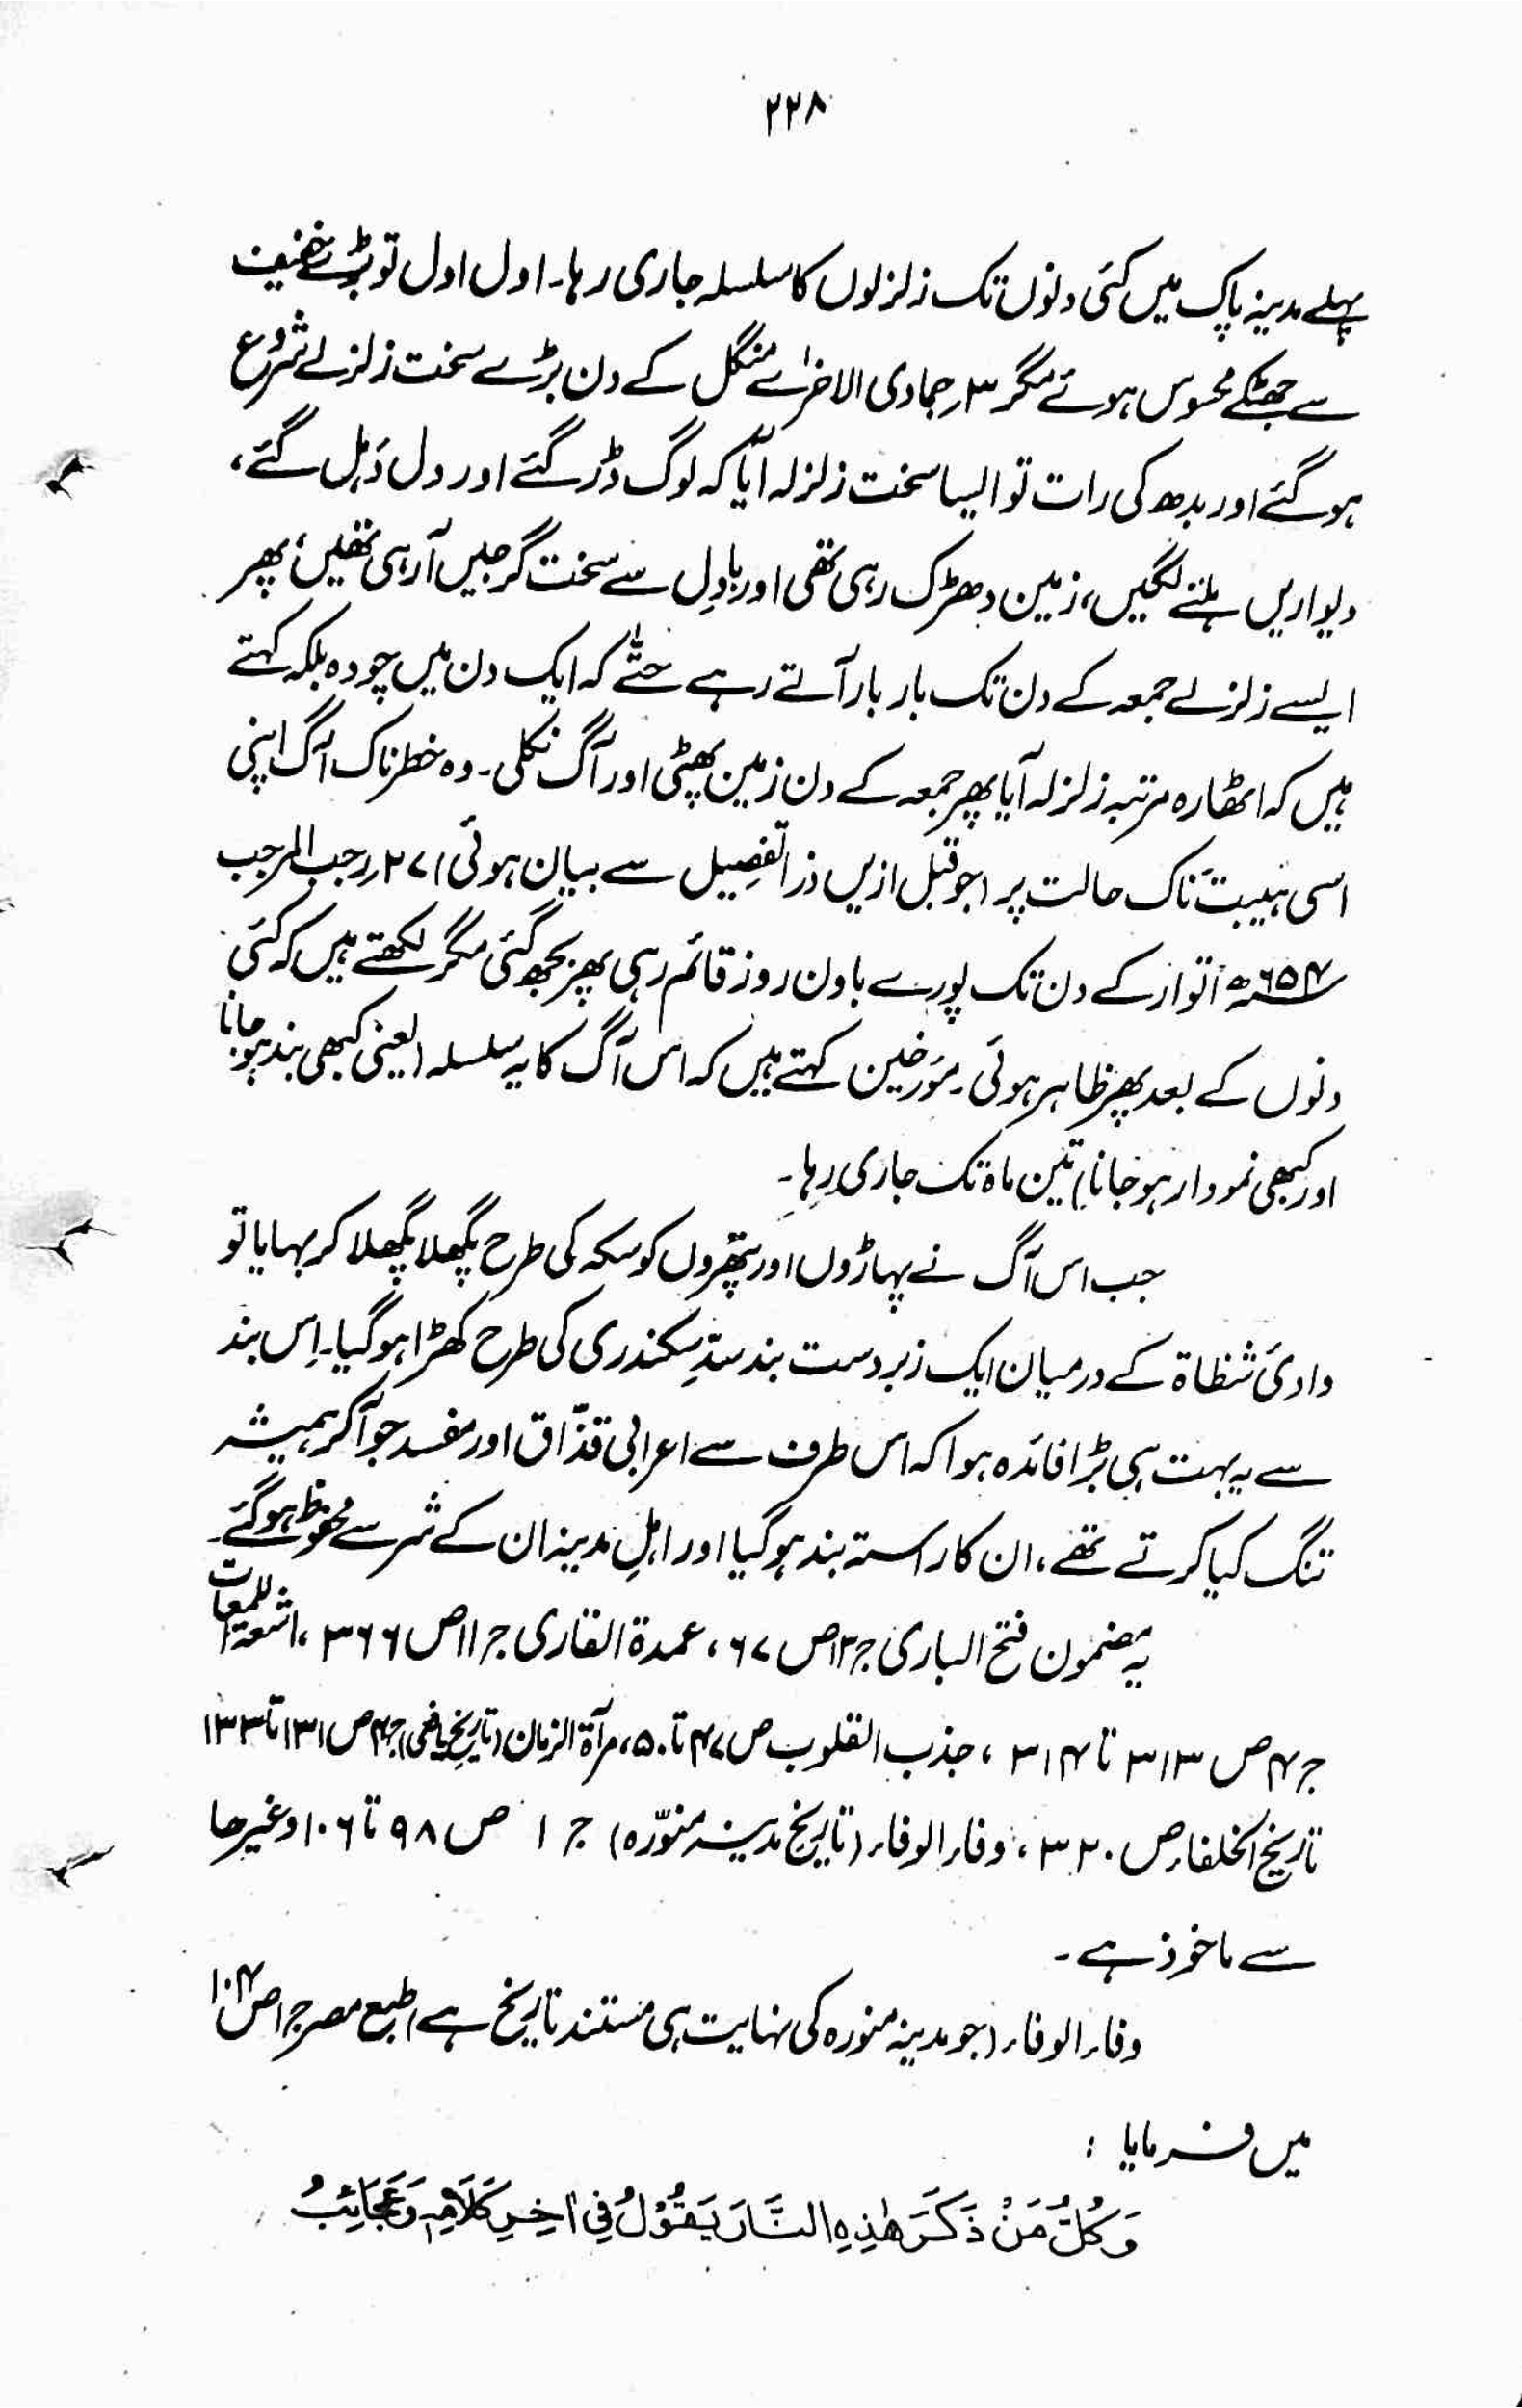 ۲۲۸
پہلے مدینہ پاک میں کئی دنوں تک زلزلوں کا سلسلہ جاری رہا۔ اول اول تو بڑے خفیف
سے جھٹکے محسوس ہوئے مگر ۳؍ جمادی الاخرٰے منگل کے دن بڑے سخت زلزلے شروع
ہو گئے اور بدھ کی رات تو ایسا سخت زلزلہ آیا کہ لوگ ڈر گئے اور دل دَہل گئے،
دیواریں ہلنے لگیں، زمین دھڑک رہی تھی اور بادل سے سخت گرجیں آ رہی تھیں، پھر
ایسے زلزلے جمعہ کے دن تک بار بار آتے رہے حتّٰے کہ ایک دن میں چودہ بلکہ کہتے
ہیں کہ اٹھارہ مرتبہ زلزلہ آیا پھر جمعہ کے دن زمین پھٹی اور آگ نکلی۔ وہ خطرناک آگ اپنی
اسی ہیبت ناک حالت پر (جو قبل ازیں ذرا تفصیل سے بیان ہوئی) ۲۷؍ رجب المرجب
۶۵۴ھ اتوار کے دن تک پورے باون روز قائم رہی پھر بجھ گئی مگر لکھتے ہیں کہ کئی
دنوں کے بعد پھر ظاہر ہوئی۔ مؤرخین کہتے ہیں کہ اس آگ کا یہ سلسلہ (یعنی کبھی بند ہو جانا
اور کبھی نمودار ہو جانا) تین ماہ تک جاری رہا۔
جب اس آگ نے پہاڑوں اور پتھروں کو سکہ کی طرح پگھلا پگھلا کر بہایا تو
وادیٔ شظاۃ کے درمیان ایک زبردست بند سدِّ سکندری کی طرح کھڑا ہو گیا۔ اِس بند
سے یہ بہت ہی بڑا فائدہ ہوا کہ اس طرف سے اعرابی قذّاق اور مفسد جو آ کر ہمیشہ
تنگ کیا کرتے تھے، ان کا راستہ بند ہو گیا اور اہلِ مدینہ ان کے شر سے محفوظ ہو گئے۔
یہ مضمون فتح الباری ج ۱۳ ص ۶۷، عمدۃ القاری ج ۱۱ ص ۳۶۶، اشعۃ اللمعات
ج ۴ ص ۳۱۳ تا ۳۱۴، جذب القلوب ص ۴۷ تا ۵۰، مرآۃ الزمان (تاریخ یافعی) ج ۴ ص ۱۳۱ تا ۱۳۳
تاریخ الخلفاء ص ۳۲۰، وفاء الوفاء (تاریخ مدینہ منوّرہ) ج ۱ ص ۹۸ تا ۱۰۶ وغیرھا
سے ماخوذ ہے۔
وفاء الوفاء (جو مدینہ منورہ کی نہایت ہی مستند تاریخ ہے) طبع مصر ج ۱ ص ۱۰۴
میں فرمایا :
وَکُلُّ مَنْ ذَکَرَ ھٰذِہِ النَّارَ یَقُوْلُ فِیْ اٰخِرِ کَلَامِہٖ وَعَجَائِبُ